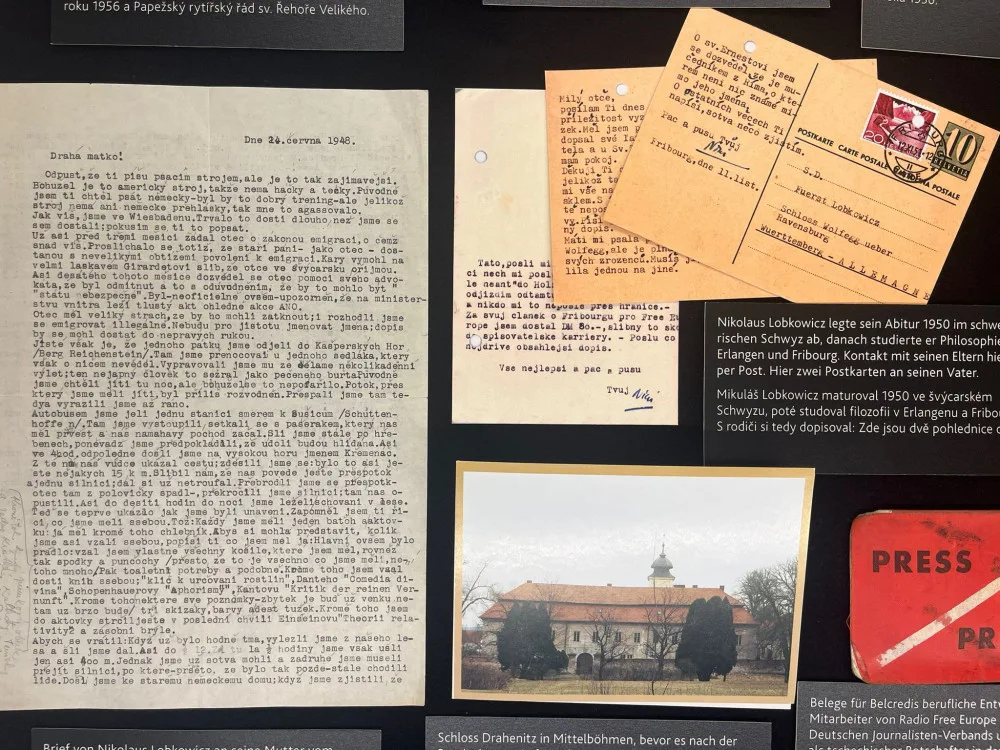 roku 1956 a Papežský rytířský řád sv. Řehoře Velikého.
Dne 24.června 1948.
Draha matko!
Odpust,ze ti pisu psacim strojem,ale je to tak zajimavejsi.
Bohuzel je to americky stroj,takze nema hacky a tecky.Puvodne
jsem ti chtel psat nemecky-byl by to dobry trening-ale jelikoz
stroj nema ani nemecke prehlasky,tak mne to agassovalo.
Jak vis,jsme ve Wiesbadenu.Trvalo to dosti dlouho,nez jsme se
sem dostali;pokusim se ti to popsat.
Uz asi pred tremi mesici zadal otec o zakonou emigraci,o cemz
snad vis.Proslichalo se totiz, ze stari pani- jako otec - dos-
tanou s nevelikymi obtizemi povoleni k emigraci.Kary vymohl na
velmi laskavem Girardetovi slib,ze otce ve švýcarsku prijmou.
Asi desateho tohoto mesice dozvedel se otec pomoci sveho advo-
kata,ze byl odmitnut a to s oduvodnenim, ze by to mohlo byt
"statu nebezpecne".Byl-neoficielne ovsem-upozornen,ze na minister-
stvu vnitra lezi tlusty akt ohledne akce ANO.
Otec mel veliky strach,ze by ho mohli zatknout;i rozhodli jsme
se emigrovat illegalne.Nebudu pro jistotu jmenovat jmena;dopis
by se mohl dostat do nepravych rukou.
Jiste vsak je, že jednoho patku jsme odjeli do Kasperskych Hor
/Berg Reichenstein/.Tam jsme prenocovali u jednoho sedlaka,ktery
vsak o nicem nevedel.Vypravovali jsme mu ze delame nekolikadenni
vylet;ten nejapny clovek to sezral jako peceneho burta.Puvodne
jsme chteli jiti tu noc,ale bohuzelse to nepofarilo.Potok,pres
ktery jsme meli jiti,byl prilis rozvodnen.Prespali jsme tam te-
dya vyrazili jsme az rano.
Autobusem jsme jeli jednu stanici smerem k Susicum /Schutten-
hoffe n/.Tam jsme vystoupili,setkali se s paserakem,ktery nas
mel prvest a nas namahavy pochod zacal.Sli jsme stale po hre-
benech,ponevadz jsme predpokladali,ze udoli budou hlidana.Asi
ve 4hod.odpoledne dosli jsme na vysokou horu jmenem Kremenac.
Z te nam nas vudce ukazal cestu;zdesili jsme se:bylo to asi je-
ste nejakych 15 k m.Slibil nam,ze nas povede jeste prespotok
ajednu silnici;dal si uz netroufal.Prebrodili jsme se prespotk-
otec tam z polovicky spadl-,prekrocili jsme silnici;tam nas o-
pustili.Asi do desiti hodin do noci jsme leželischovani v lese.
Ted se teprve ukazlo jak jsme byli unaveni.Zapomněl jsem ti ri-
ci,co jsme meli ssebou.Toz:Kazdy jsme meli jeden batoh aaktov-
ku;ja mel kromě toho chlebnik.Abys si mohla predstavit, kolik
jsme asi vzali ssebou,popisi ti co jsem mel ja:Hlavni ovsem bylo
pradlo:vzal jsem vlastne vsechny kosile,ktere jsem mel,rovnez
tak spodky a puncochy /presto,ze to je vsechno co jsme meli,ne-
toho mnoho/Pak toaletni potreby a podobne.Krome toho jsem vzal
dosti knih ssebou;"klic k urcovani rostlin",Danteho "Comedia di-
vina",Schopenhauerovy "Aphorismy", Kantovu "Kritik der reinen Ver-
nunft".Krome tohonektere sve poznamky-zbytek je bud uz venku ne-
tam uz brzo bude/ tri skizaky,barvy adeat tuzek.Krome toho jsem
do aktovky strcilještе v posledni chvili Einseinovu"Theorii rela-
tivity2 a zasobni bryle.
Abych se vratil:Kdyz uz bylo hodne tma,vylezli jsme z naseho le-
sa a sli jsme dal.Asi do
hodiny jsme vsak usli
jen asi 400 m.Jednak jsme uz sotva mohli a zadruhe jsme museli
prejit silnici,po ktere-presto. ze bylo tak pozde-stale chodili
lide.Dosl jsme ke staremu nemeckemu domu;kdyz jsme zjistili,ze
Tato,posli mi
ci nech mi posl
le neant"do Hol
odjizdim odtamt
a nikdo mi to neposle pres hranice.-
Za svuj clanek o Fribourgu pro Free Eu
rope jsem dostal DM 80.-,slibny to sko
do spisovatelske karriery. - Poslu co
nejdrive obsahlejsi dopis.
Vse nejlepsi a pac a pusu
Tvuj Niki
Milý otce,
posílám Ti dnes
příležitost vyz
zek.Měl jsem p
dopsal své la
tela a u Sv.
mám pokoj.
Děkuji Ti
jelikož t
mi vše na
sklem.S
te nepos
vy.Pisi
ny dopis.
Máti mi psala
Wolfegg,ale je plne
svých provozenců.Musia
lila jednou na jine.
O sv.Ernestovi jsem
se dozvěděl,že je mu-
čedníkem z Říma,o kte-
rém není nic známé mi-
mo jeho jména.
O ostatních věcech Ti
napíši,sotva něco zjistím.
Pac a pusu Tvůj
Niki
Fribourg,dne 11.list.
POSTKARTE CARTE POSTALE
20
10
S.D.
Fuerst Lobkowicz
Schloss Wolfegg ueber
Ravensburg
Wuerttemberg - ALLEMAGNE
Nikolaus Lobkowicz legte sein Abitur 1950 im schwe
rischen Schwyz ab, danach studierte er Philosophie
Erlangen und Fribourg. Kontakt mit seinen Eltern hie
per Post. Hier zwei Postkarten an seinen Vater.
Mikuláš Lobkowicz maturoval 1950 ve švýcarském
Schwyzu, poté studoval filozofii v Erlangenu a Fribou
S rodiči si tedy dopisoval: Zde jsou dvě pohlednice o
PRESS
PR
Belege für Belcredis berufliche Entw
Mitarbeiter von Radio Free Europe
Deutschen Journalisten-Verbands u
Schloss Drahenitz in Mittelböhmen, bevor es nach der
Brief von Nikolaus Lobkowicz an seine Mutter vom